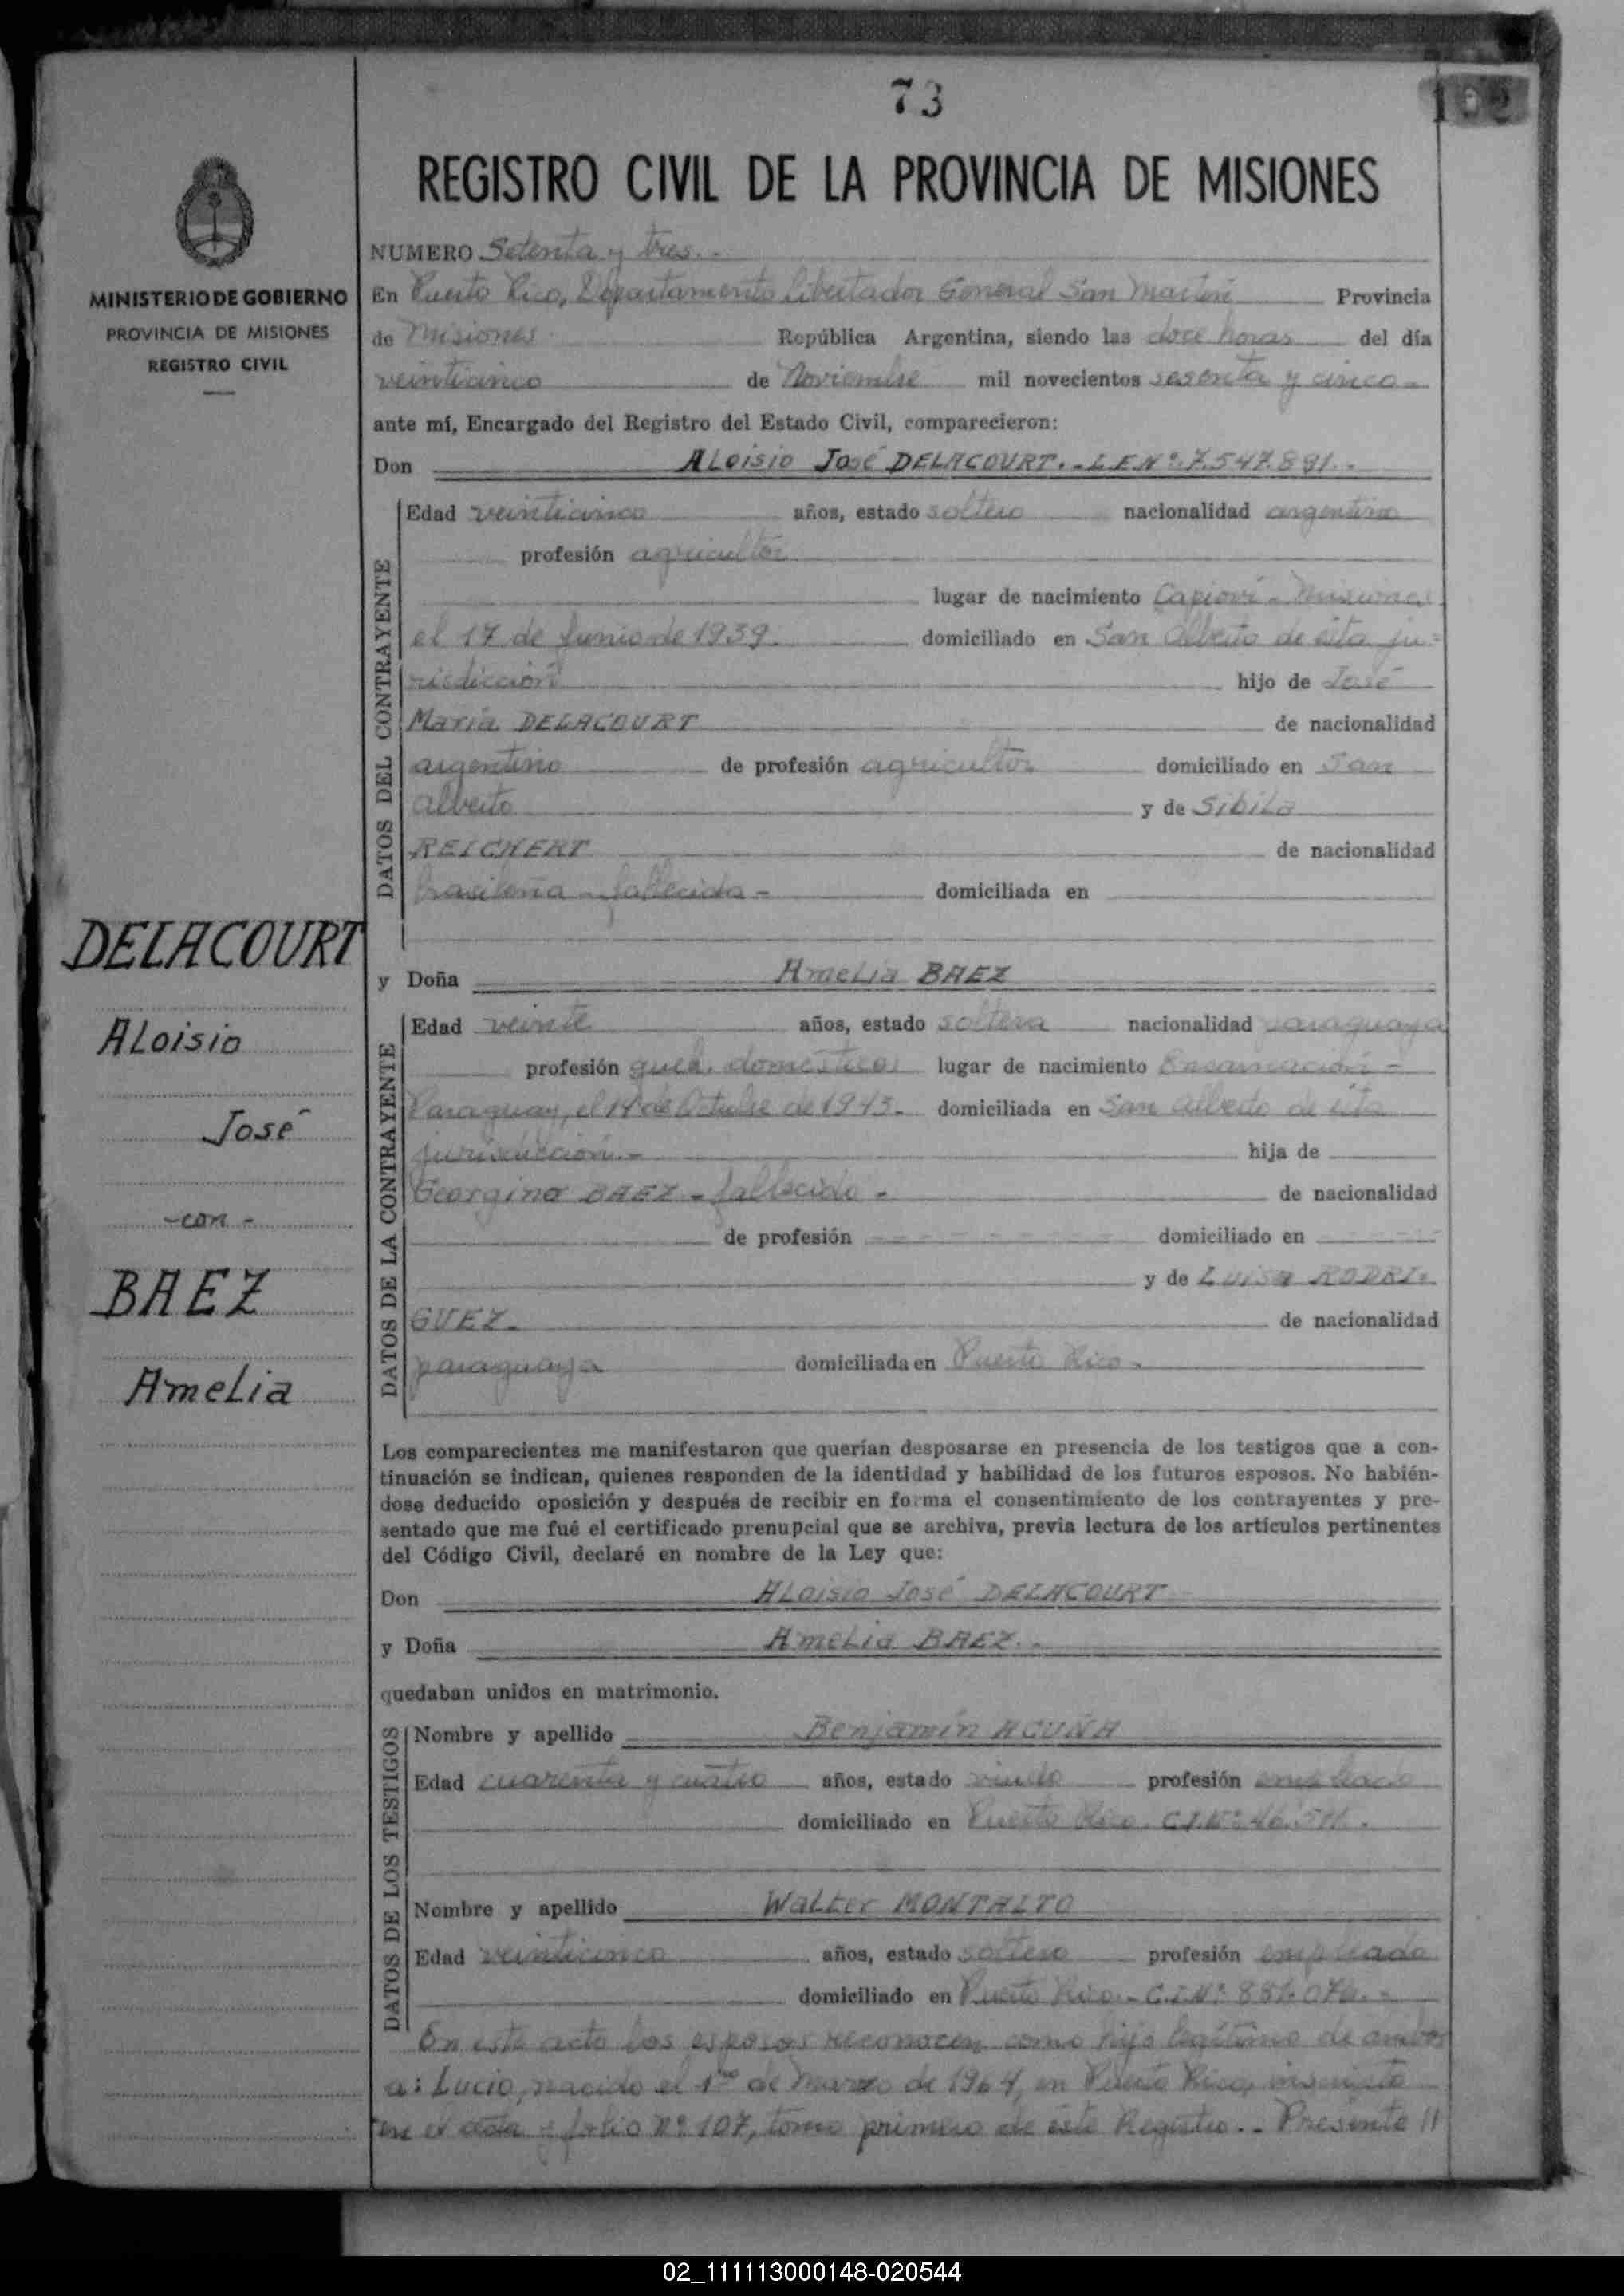 73
102
REGISTRO CIVIL DE LA PROVINCIA DE MISIONES
MINISTERIO DE GOBIERNO
PROVINCIA DE MISIONES
REGISTRO CIVIL
DELACOURT
Aloisio
José
-con-
BAEZ
Amelia
NUMERO Setenta y tres.-
En Puerto Rico, Departamento Libertador General San Martín Provincia
de Misiones República Argentina, siendo las doce horas del día
veinticinco de Noviembre mil novecientos sesenta y cinco-
ante mí, Encargado del Registro del Estado Civil, comparecieron:
Don Aloisio José DELACOURT.-L.E.Nº.7.547.891.-
DATOS DEL CONTRAYENTE
Edad veinticinco años, estado soltero nacionalidad argentino
profesión agricultor
lugar de nacimiento Capioví-Misiones
el 17 de Junio de 1939. domiciliado en San Alberto de ésta ju-
risdicción hijo de José
María DELACOURT de nacionalidad
argentino de profesión agricultor domiciliado en San
Alberto y de Sibila
REICHERT de nacionalidad
brasileña-fallecida- domiciliada en
y Doña Amelia BAEZ
DATOS DE LA CONTRAYENTE
Edad veinte años, estado soltera nacionalidad paraguaya
profesión queh. domésticos lugar de nacimiento Encarnación-
Paraguay, el 14 de Octubre de 1945. domiciliada en San Alberto de ésta
jurisdicción.- hija de
Georgino BAEZ-fallecido- de nacionalidad
de profesión domiciliado en
y de Luisa RODRI-
GUEZ- de nacionalidad
paraguaya domiciliada en Puerto Rico-
Los comparecientes me manifestaron que querían desposarse en presencia de los testigos que a con-
tinuación se indican, quienes responden de la identidad y habilidad de los futuros esposos. No habién-
dose deducido oposición y después de recibir en forma el consentimiento de los contrayentes y pre-
sentado que me fué el certificado prenupcial que se archiva, previa lectura de los artículos pertinentes
del Código Civil, declaré en nombre de la Ley que:
Don Aloisio José DELACOURT
y Doña Amelia BAEZ.-
quedaban unidos en matrimonio.
DATOS DE LOS TESTIGOS
Nombre y apellido Benjamín ACUÑA
Edad cuarenta y cuatro años, estado viudo profesión empleado
domiciliado en Puerto Rico. C.I.Nº
Nombre y apellido Walter MONTALTO
Edad veinticinco años, estado soltero profesión empleado
domiciliado en Puerto Rico.-C.I.Nº
En este acto los esposos reconocen como hijo legítimo de ambos
a: Lucio, nacido el 1ro de Marzo de 1964, en Puerto Rico, inscripto
en el acta y folio nº 107, tomo primero de éste Registro.-Presente //
02_111113000148-020544